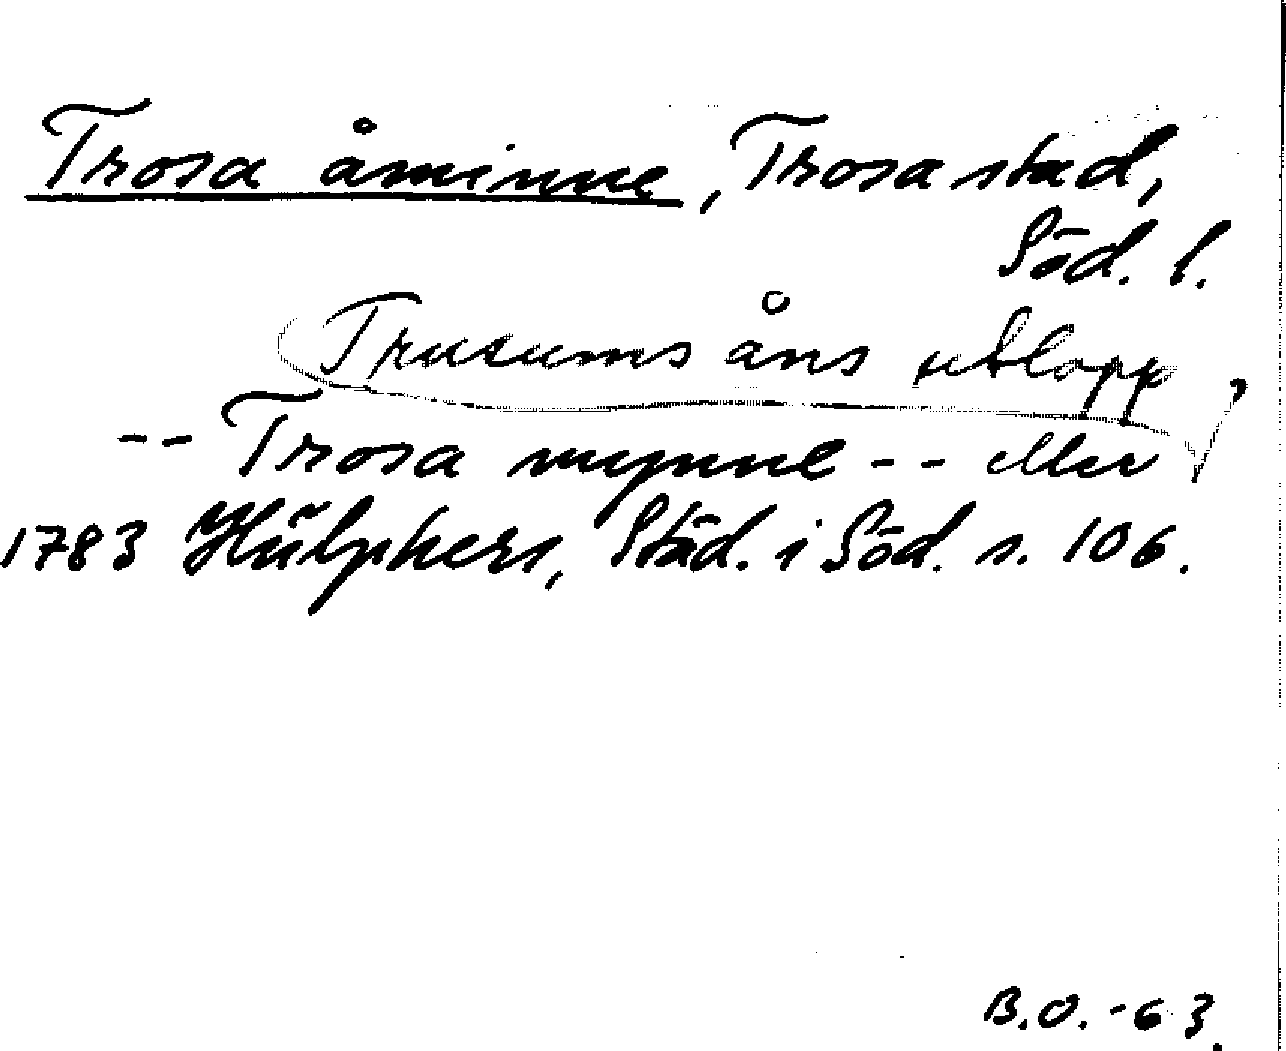 Trosa åminne, Trosa stad,
Söd. l.
Trusums åns utlopp,
-- Trosa mynne -- eller
1783 Hülphers, Städ. i Söd. s. 106.
B.O. -63.